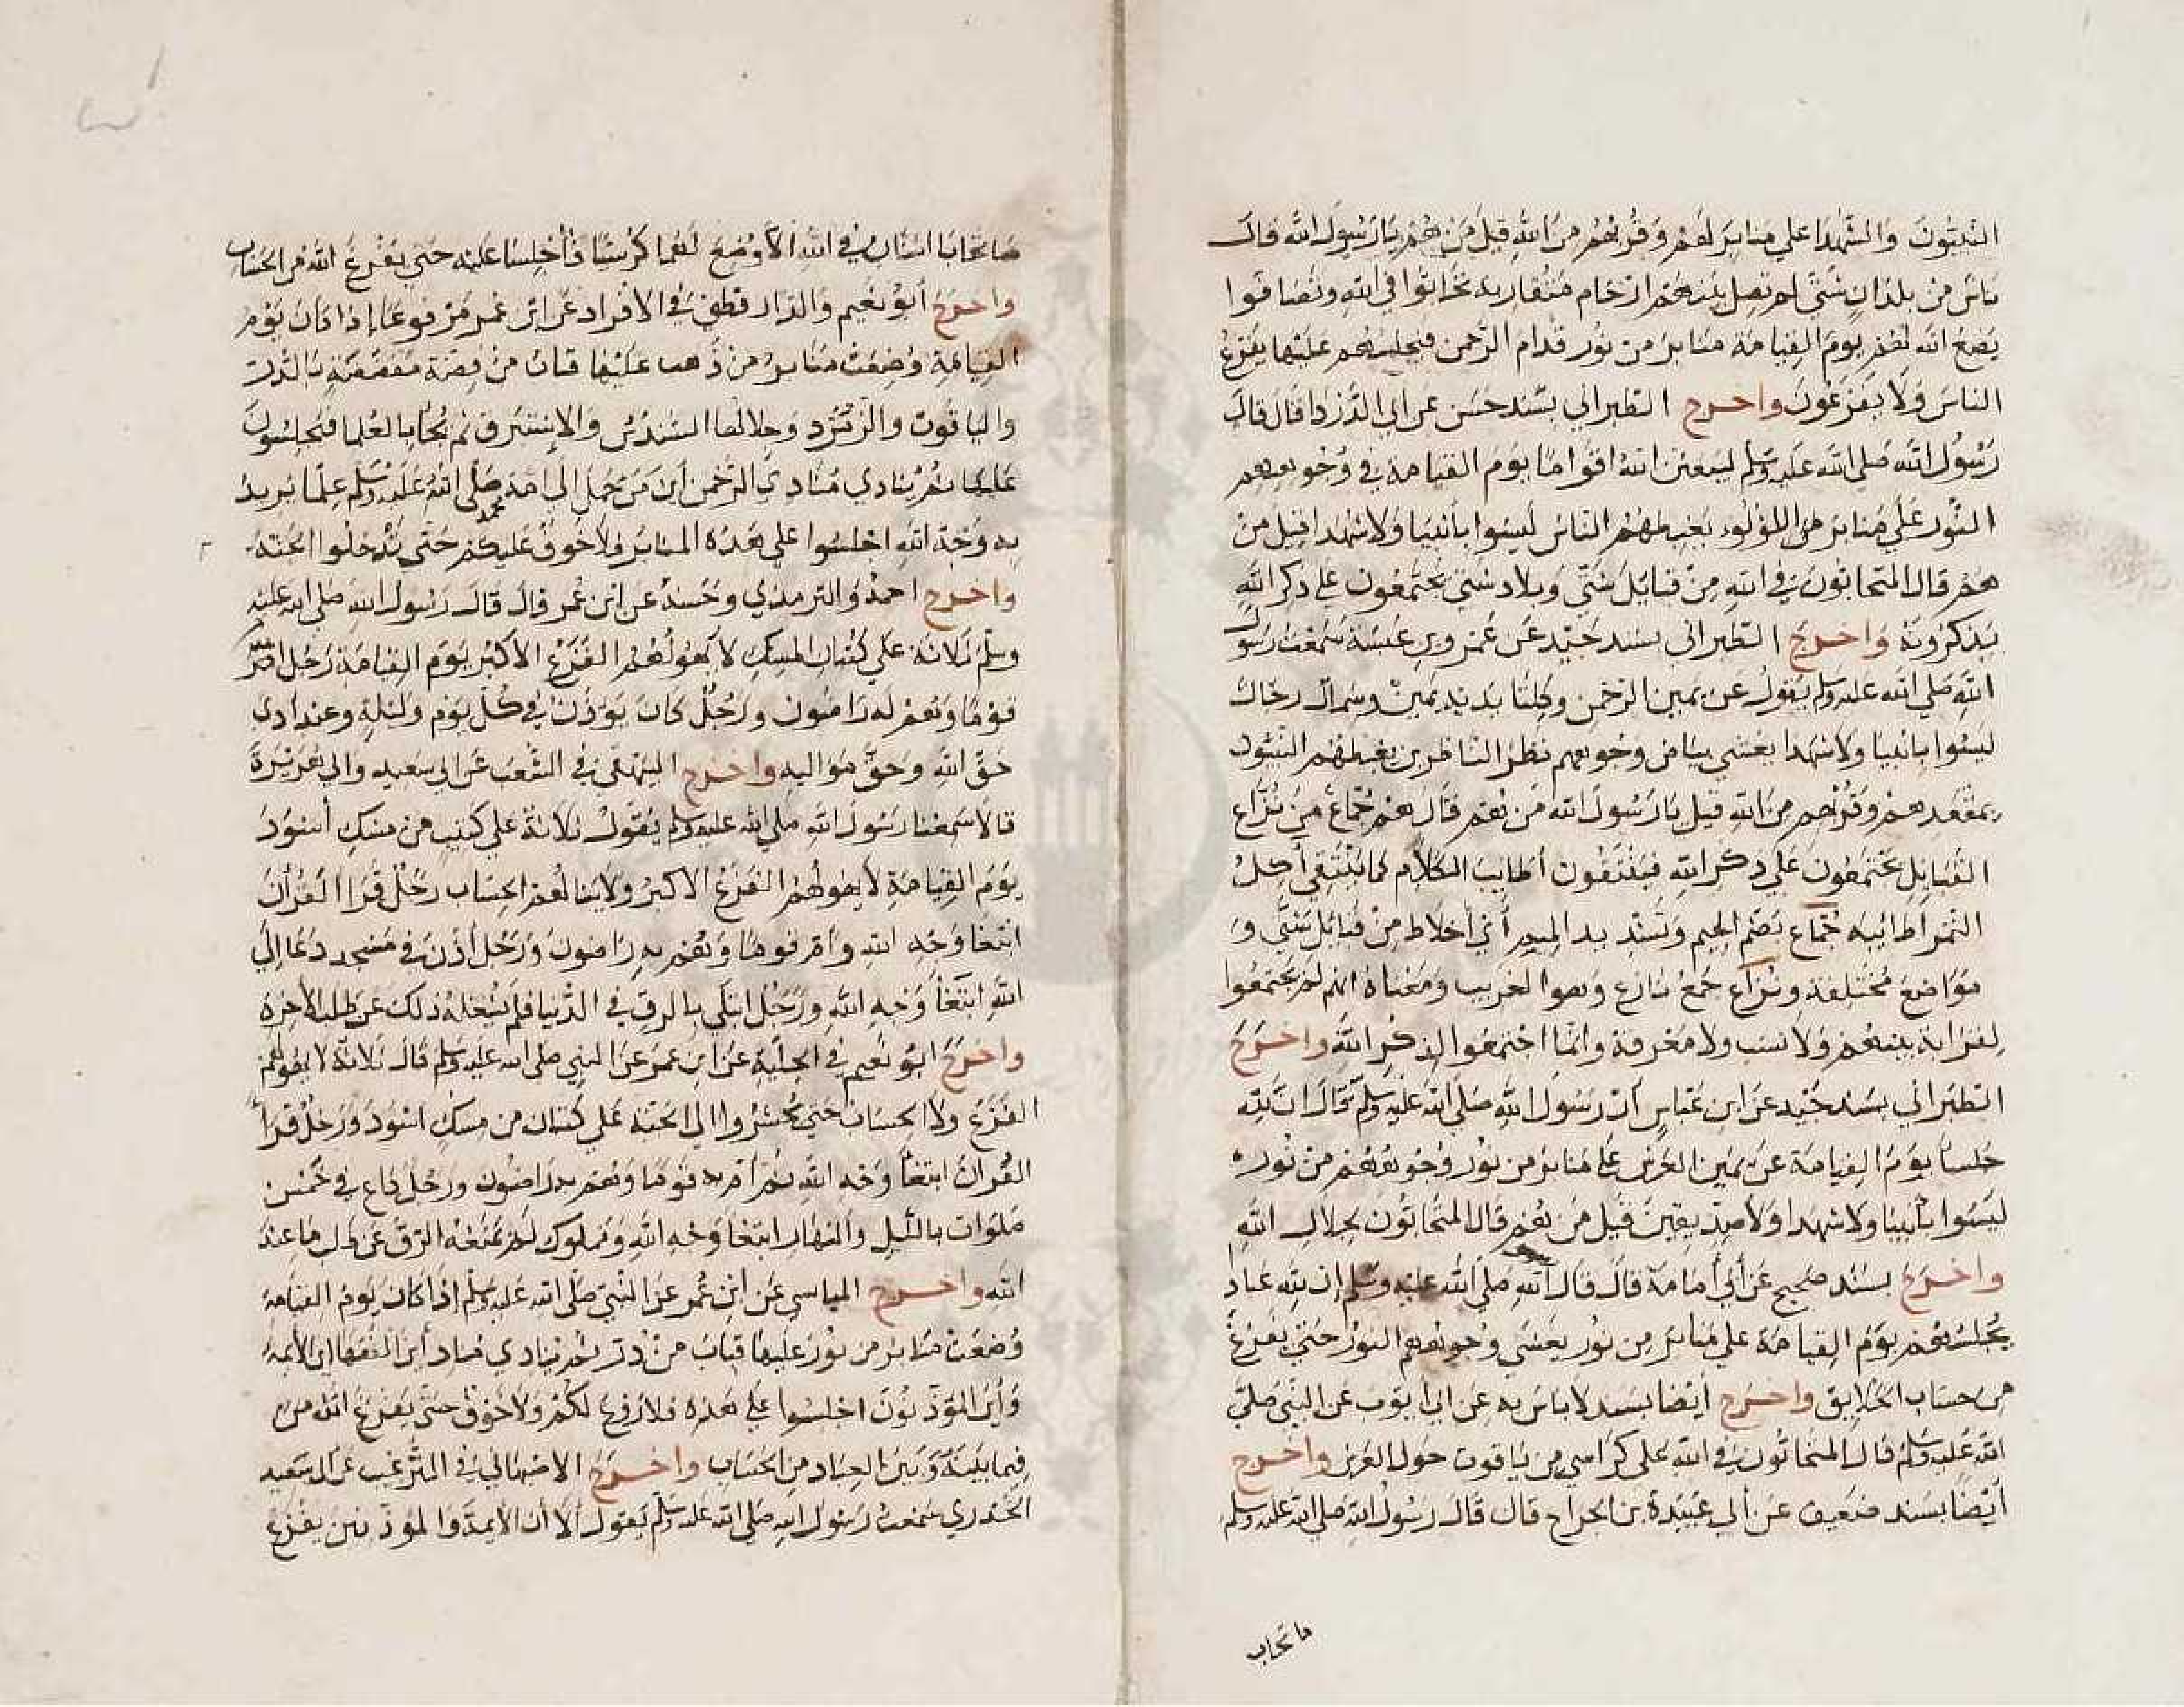 النبيون والشهدا علي منابرلهم وقربهم من الله قيل من هم يارسول الله قال
ناس من بلدان شتى لم تصل بينهم ارحام متقاربة تحابوا في الله وتصافوا
يضع الله لهم يوم القيامة منابر من نور قدام الرحمن فيجلسهم عليها يفزع
الناس ولا يفزعون واخرج الطبراني بسند حسن عن ابي الدردا قال قال
رسول الله صلى الله عليه وسلم ليبعثن الله اقواما يوم القيامة في وجوههم
النور علي منابر من اللؤلوء يغبطهم الناس ليسوا بأنبيا ولا شهدا قيل من
هم قال المتحابون في الله من قبايل شتي وبلاد شتي يجتمعون على ذكر الله
يذكرونه واخرج الطبراني بسند جيد عن عمرو بن عبسة سمعت رسول
الله صلي الله عليه وسلم يقول عن يمين الرحمن وكلتا يديه يمين وشمال رجال
ليسوا بانبيا ولا شهدا يغشي بياض وجوههم نظر الناظرين يغبطهم النبيون
بمقعدهم وقربهم من الله قيل يا رسول الله من هم قال هم جماع من نزاع
القبايل يجتمعون علي ذكر الله فينتقون أطايب الكلام كما ينتقي أكل
التمر اطائبه جماع بضم الجيم وتشديد الميم أي أخلاط من قبائل شتي و
مواضع مختلفة ونزاع جمع نازع وهو الغريب ومعناه انهم لم يجتمعوا
لقرابة بينهم ولا نسب ولا معرفة وانما اجتمعوا لذكر الله واخرج
الطبراني بسند جيد عن ابن عباس أن رسول الله صلى الله عليه وسلم قال ان لله
جلسا يوم القيامة عن يمين العرش على منابر من نور وجوههم من نور
ليسوا بأنبيا ولا شهدا ولا صديقين قيل من هم قال المتحابون بجلال الله
واخرج بسند صحيح عن أبي أمامة قال قال الله صلى الله عليه وسلم إن لله عبادا
يجلسهم يوم القيامة علي منابر من نور يغشي وجوههم النور حتي يفرغ
من حساب الخلايق واخرج أيضا بسند لا باس به عن ابي ايوب عن النبي صلي
الله عليه وسلم قال المتحابون في الله على كراسي من ياقوت حول العرش واخرج
أيضا بسند ضعيف عن أبي عبيدة بن الجراح قال قال رسول الله صلى الله عليه وسلم
ما تحاب
ما تحابا اثنان في الله الا وضع لهما كرسيا فأجلسا عليه حتي يفرغ الله من الحساب
واخرج أبو نعيم والدارقطني في الافراد عن ابن عمر مرفوعا إذا كان يوم
القيامة وضعت منابر من ذهب عليها قباب من فضة مفضضة بالدر
والياقوت والزمرد وجلالها السندس والاستبرق ثم يجا بالعلما فيجلسون
عليها ثم ينادي منادي الرحمن أين من حمل الي امة محمد صلى الله عليه وسلم علما يريد
به وجه الله اجلسوا علي هذه المنابر ولا خوف عليكم حتى تدخلوا الجنة
واخرج احمد والترمذي وحسنه عن ابن عمر قال قال رسول الله صلى الله عليه
وسلم ثلاثة علي كثبان المسك لا يهولهم الفزع الاكبر يوم القيامة رجل ام
قوما وهم له راضون ورجل كان يوذن في كل يوم وليلة وعبد ادى
حق الله وحق مواليه واخرج البيهقي في الشعب عن ابي سعيد وابي هريرة
قالا سمعنا رسول الله صلي الله عليه وسلم يقول ثلاثة علي كثيب من مسك أسود
يوم القيامة لا يهولهم الفزع الاكبر ولا ينالهم الحساب رجل قرا القرأن
ابتغا وجه الله وام قوما وهم به راضون ورجل أذن في مسجد دعا إلي
الله ابتغأ وجه الله ورجل ابتلي بالرق في الدنيا فلم يشغله ذلك عن طلب الاخرة
واخرج ابو نعيم في الحلية عن ابن عمر عن النبي صلى الله عليه وسلم قال ثلاثة لا يهولهم
الفزع ولا الحساب حتي يحشروا الي الجنة علي كثبان من مسك اسود رجل قرأ
القرأن ابتغأ وجه الله ثم أم به قوما وهم به راضون ورجل داع في خمس
صلوات بالليل والنهار ابتغا وجه الله ومملوك لم يمنعه الرق عن طلب ما عند
الله واخرج المياسي عن ابن عمر عن النبي صلى الله عليه وسلم إذا كان يوم القيامة
وضعت منابر من نور عليها قباب من در ثم ينادي مناد أين الفقها اين الأيمة
وأين الموذنون اجلسوا علي هذه فلا روع لكم ولا خوف حتى يفرغ الله من
فيما بينه وبين العباد من الحساب واخرج الاصبهاني في الترغيب عن ابي سعيد
الخدري سمعت رسول الله صلى الله عليه وسلم يقول ألا أن الأيمة والموذنين يفزع